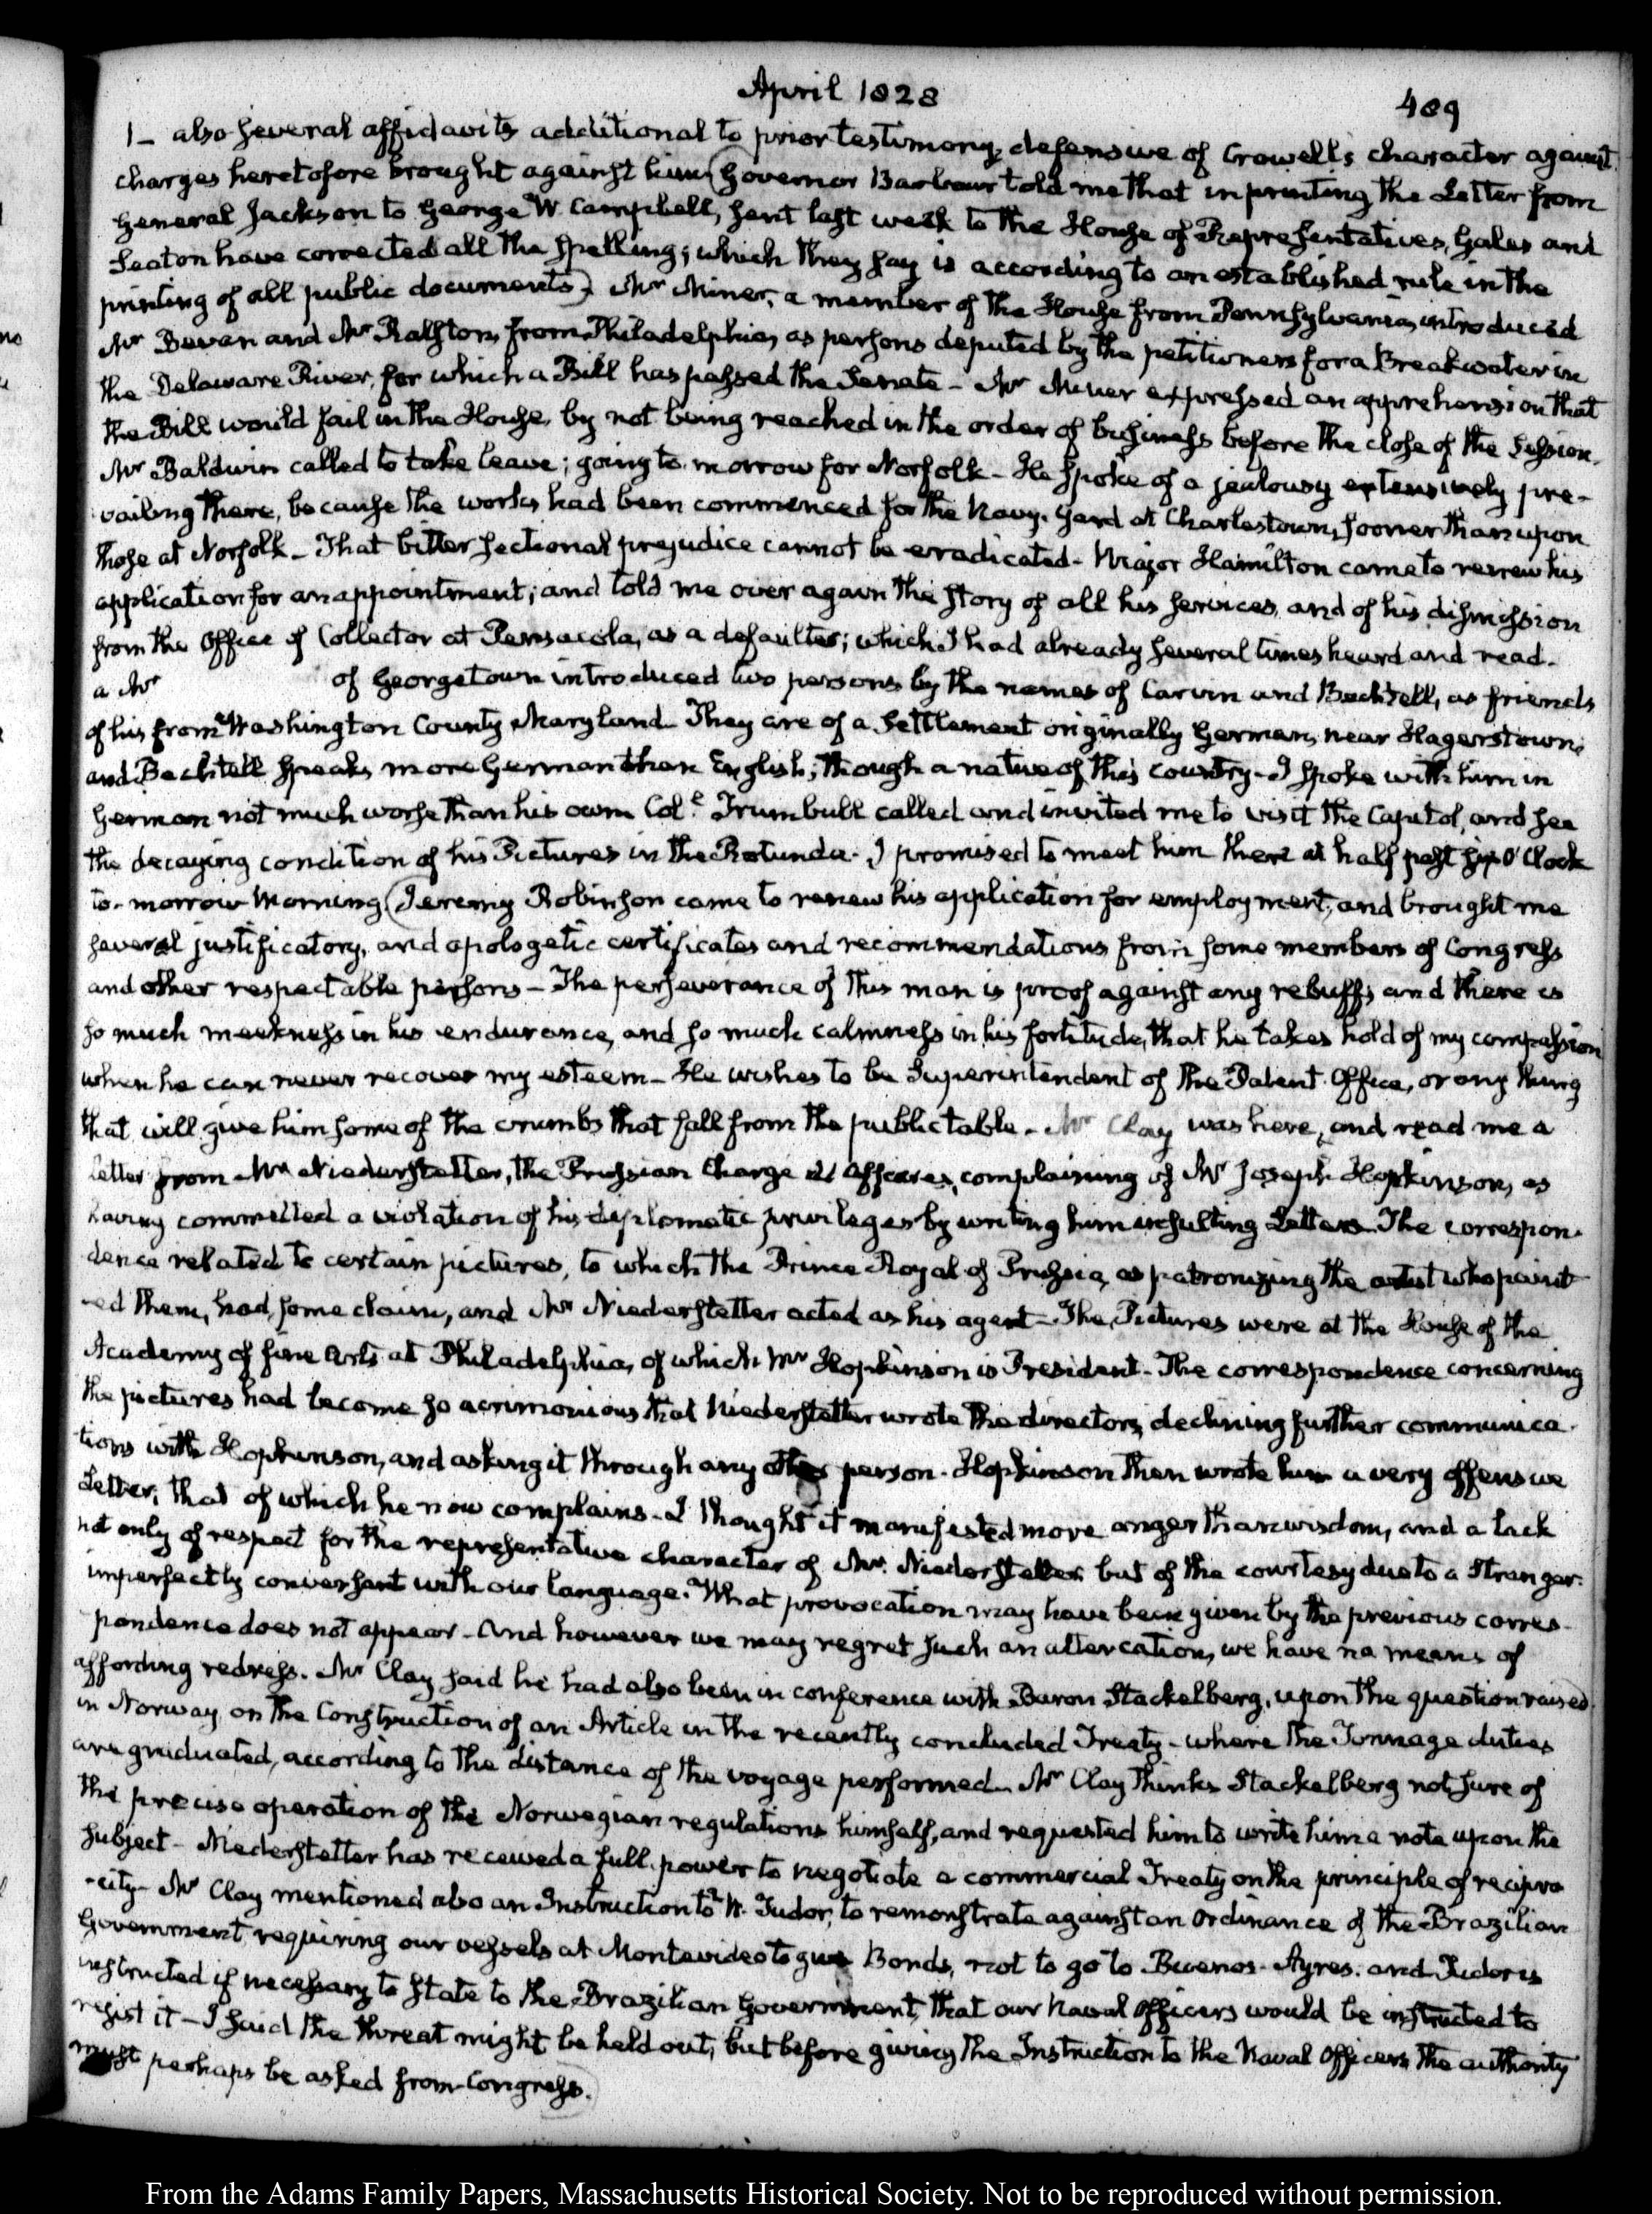 April 1828
489
1 - also several affidavits additional to prior testimony, defensive of Crowell's character against
charges heretofore brought against him (Governor Barbour told me that in printing the Letter from
General Jackson to George W. Campbell, sent last week to the House of Representatives, Gales and
Seaton have corrected all the spelling; which they say is according to an established rule in the
printing of all public documents). Mr Miner, a member of the House from Pennsylvania, introduced
Mr Bevan and Mr Ralston, from Philadelphia, as persons deputed by the petitioners for a Breakwater in
the Delaware River, for which a Bill has passed the Senate - Mr Miner expressed an apprehension that
the Bill would fail in the House, by not being reached in the order of business before the close of the Session.
Mr Baldwin called to take leave; going to-morrow for Norfolk - He spoke of a jealousy extensively pre-
vailing there, because the works had been commenced for the Navy-Yard at Charlestown, sooner than upon
those at Norfolk - That bitter sectional prejudice cannot be eradicated - Major Hamilton came to renew his
application for an appointment; and told me over again the story of all his services, and of his dismission
from the Office of Collector at Pensacola, as a defaulter; which I had already several times heard and read.
a Mr of Georgetown introduced two persons by the names of Carvin and Bechtell, as friends
of his from Washington County Maryland - They are of a Settlement originally German, near Hagerstown;
and Bechtell speaks more German than English; though a native of this country - I spoke with him in
German not much worse than his own Coll. Trumbull called and invited me to visit the Capitol, and see
the decaying condition of his Pictures in the Rotunda. I promised to meet him there at half past six O'Clock
to-morrow Morning (Jeremy Robinson came to renew his application for employment, and brought me
several justificatory, and apologetic certificates and recommendations from some members of Congress
and other respectable persons - The perseverance of this man is proof against any rebuffs and there is
so much meekness in his endurance, and so much calmness in his fortitude, that he takes hold of my compassion
when he can never recover my esteem - He wishes to be Superintendent of the Patent Office, or any thing
that will give him some of the crumbs that fall from the public table - Mr Clay was here, and read me a
letter from Mr Niederstetter, the Prussian Chargé d'Affaires, complaining of Mr Joseph Hopkinson, as
having committed a violation of his diplomatic privileges by writing him insulting Letters. The correspon-
dence related to certain pictures, to which the Prince Royal of Prussia, as patronizing the artist who paint-
-ed them, had some claim, and Mr Niederstetter acted as his agent - The Pictures were at the House of the
Academy of fine Arts at Philadelphia, of which Mr Hopkinson is President - The correspondence concerning
the pictures had become so acrimonious that Niederstetter wrote the directors, declining further communica-
tions with Hopkinson, and asking it through any other person - Hopkinson then wrote him a very offensive
Letter, that of which he now complains - I thought it manifested more anger than wisdom, and a lack
not only of respect for the representative character of Mr. Niederstetter but of the courtesy due to a Stranger
imperfectly conversant with our language. What provocation may have been given by the previous corres-
pondence does not appear - And however we may regret such an altercation, we have no means of
affording redress. Mr Clay said he had also been in conference with Baron Stackelberg, upon the question raised
in Norway, on the Construction of an Article in the recently concluded Treaty - where the Tonnage duties
are graduated, according to the distance of the voyage performed - Mr Clay thinks Stackelberg not sure of
the precise operation of the Norwegian regulations himself, and requested him to write him a note upon the
subject - Niederstetter has received a full power to negotiate a commercial Treaty on the principle of recipro
-city - Mr Clay mentioned also an Instruction to W. Tudor, to remonstrate against an Ordinance of the Brazilian
Government, requiring our vessels at Montevideo to give Bonds, not to go to Buenos-Ayres. and Tudor is
instructed if necessary to state to the Brazilian Government, that our Naval Officers would be instructed to
resist it - I said the threat might be held out, but before giving the Instruction to the Naval Officers, the authority
must perhaps be asked from Congress.
From the Adams Family Papers, Massachusetts Historical Society. Not to be reproduced without permission.